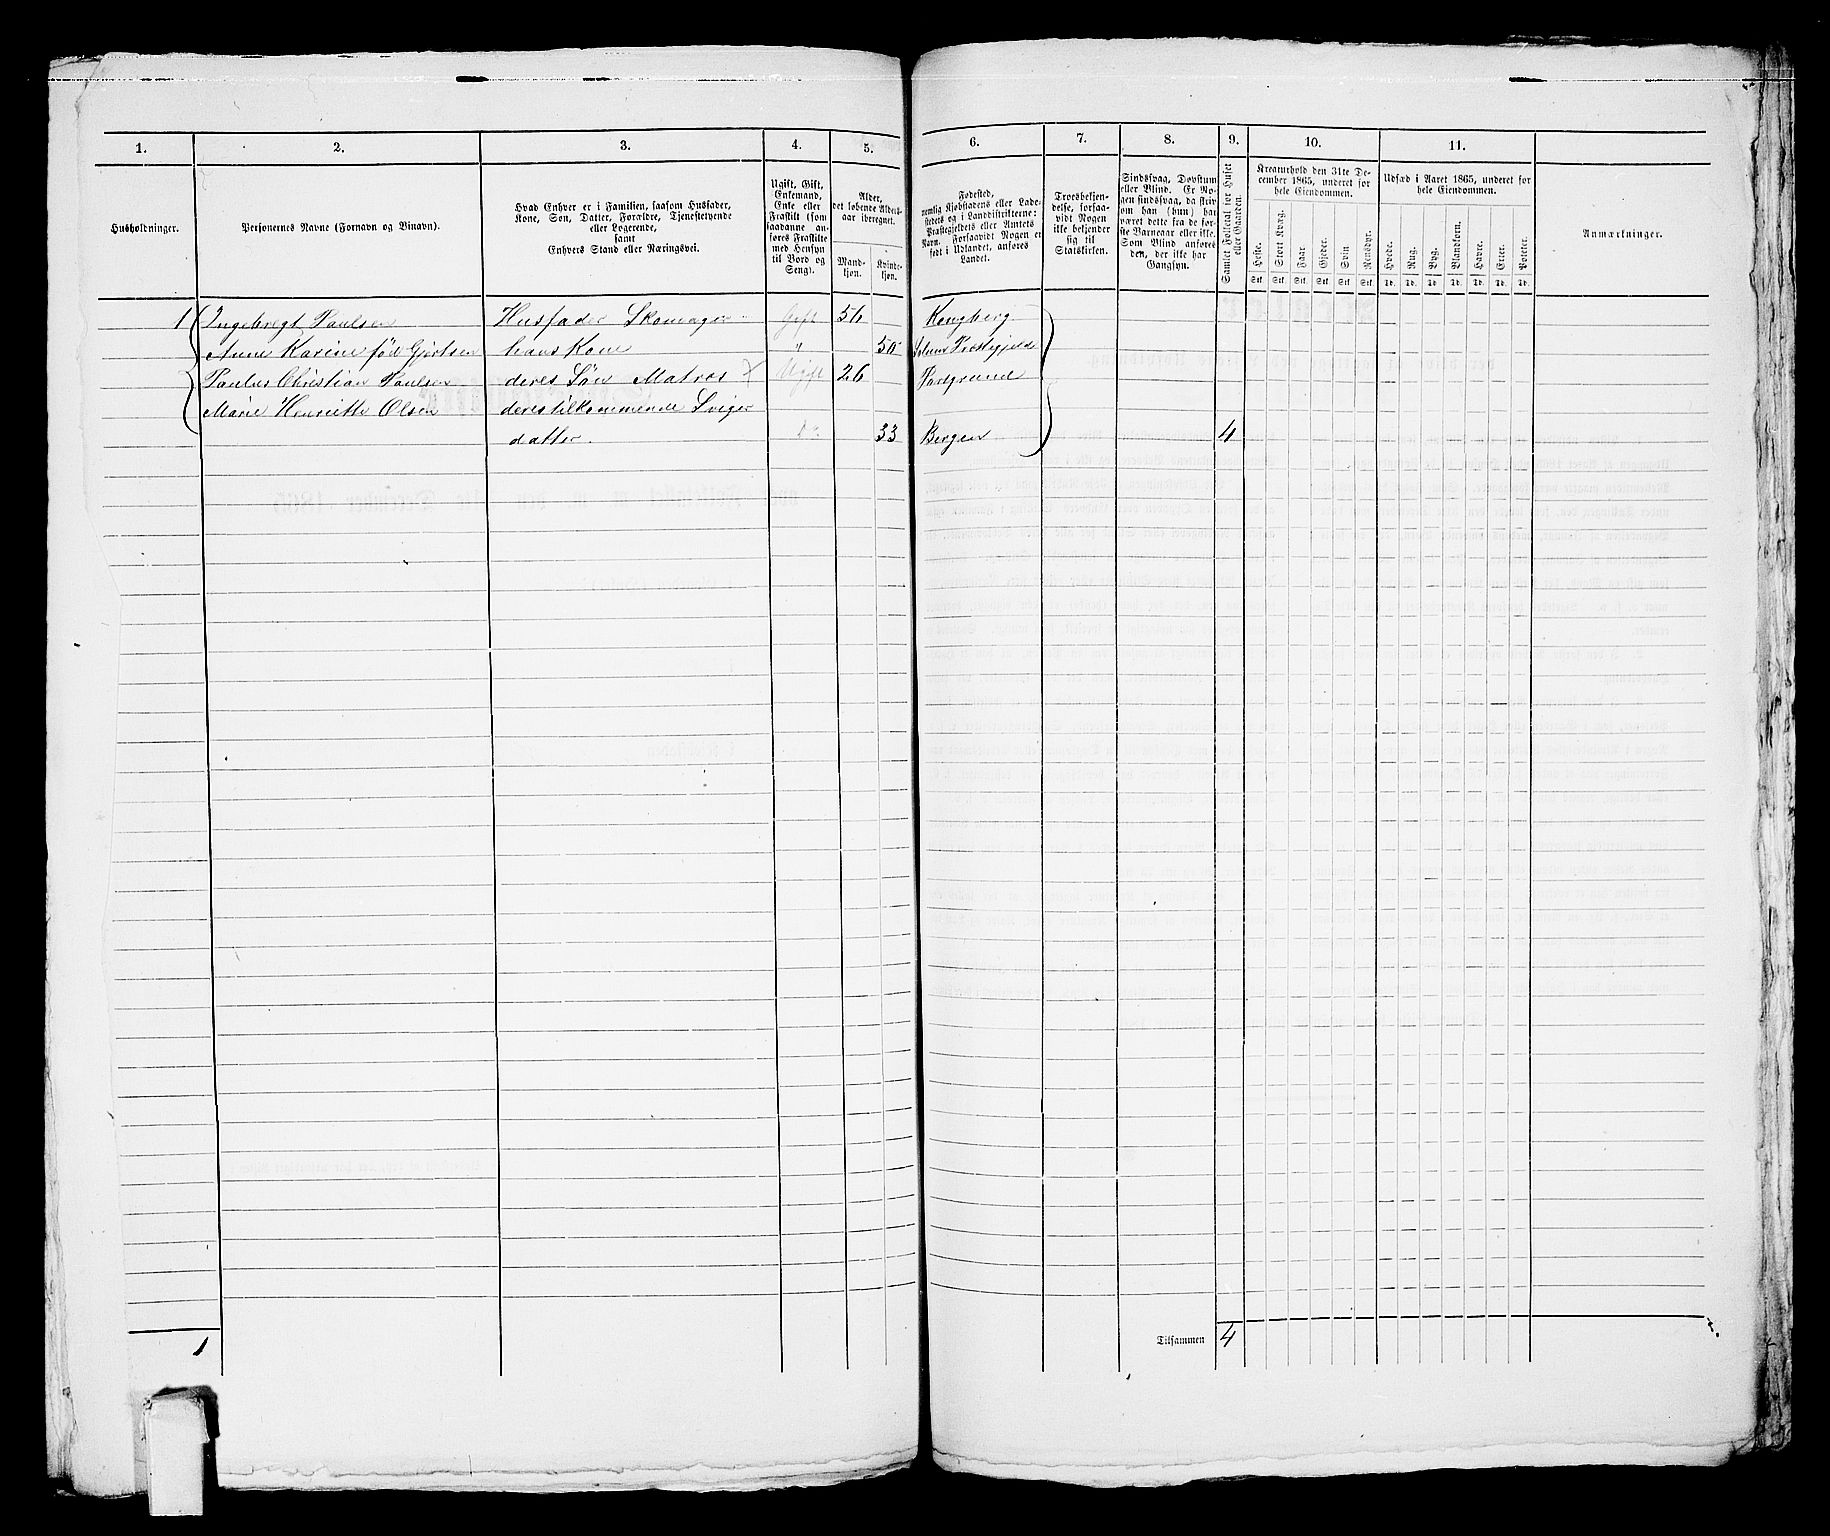 1. 2. 3. 4. 5. 6. 7. 8. 9. 10. 11.
Husholdninger.
Personernes Navne (Fornavn og Binavn).
Hvad Enhver er i Familien, saasom Husfader,
Kone, Søn, Datter, Forældre, Tjenestetyende
eller Logerende,
samt
Enhvers Stand eller Næringsvei.
Ugift, Gift,
Enkemand,
Enke eller
Fraskilt (som
saadanne an-
føres Fraskilte
med Hensyn
til Bord og
Seng).
Alder,
det løbende Alders-
aar iberegnet.
Mand-
kjøn.
Kvinde-
kjøn.
Fødested,
nemlig Kjøbstadens eller Lade-
stedets og i Landdistrikterne:
Præstegjeldets eller Amtets
Navn. Forsaavidt Nogen er
født i Udlandet, anføres
Landet.
Troesbekjen-
delse, forsaa-
vidt Nogen
ikke bekjender
sig til
Statskirken.
Sindssvag, Døvstum
eller Blind. Er No-
gen sindssvag, da skri-
ves om han (hun) har
været dette fra de før-
ste Barneaar eller ikke.
Som Blind anføres
den, der ikke har
Gangsyn.
Samlet Folketal for Huset
eller Gaarden.
Kreaturhold den 31te De-
cember 1865, underet for
hele Eiendommen.
Heste. Stort Kvæg. Faar. Gjeder. Svin Rensdyr.
Stk. Stk. Stk. Stk. Stk. Stk.
Udsæd i Aaret 1865, underet for
hele Eiendommen.
Hvede. Rug. Byg. Blandkorn. Havre. Erter. Poteter.
Td. Td. Td. Td. Td. Td. Td.
Anmærkninger.
1 Ingebregt Paulsen Husfader Skomager Gift 56 Kongberg
Anne Karine fød Gjertsen hans Kone " 50 Solum Præstegjeld
Paulus Christian Paulsen deres Søn Matros Ugift 26 Porsgrund
Marie Henriette Olsen deres tilkommende Sviger
datter. Do 33 Bergen 4
1 Tilsammen 4